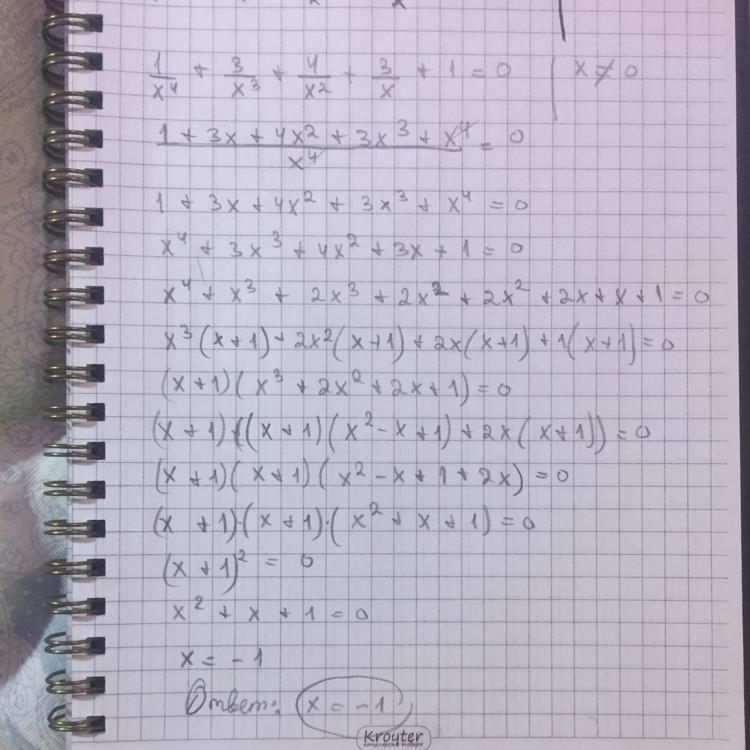 1/x⁴ + 3/x³ + 4/x² + 3/x + 1 = 0 | x ≠ 0
(1 + 3x + 4x² + 3x³ + x⁴)/x⁴ = 0
1 + 3x + 4x² + 3x³ + x⁴ = 0
x⁴ + 3x³ + 4x² + 3x + 1 = 0
x⁴ + x³ + 2x³ + 2x² + 2x² + 2x + x + 1 = 0
x³(x+1) + 2x²(x+1) + 2x(x+1) + 1(x+1) = 0
(x+1)(x³ + 2x² + 2x + 1) = 0
(x+1)((x+1)(x² - x + 1) + 2x(x+1)) = 0
(x+1)(x+1)(x² - x + 1 + 2x) = 0
(x+1)·(x+1)·(x² + x + 1) = 0
(x+1)² = 0
x² + x + 1 = 0
x = -1
Ответ: x = -1
Kroyter